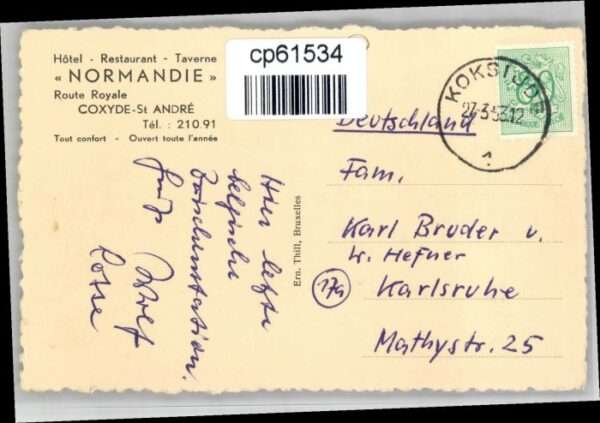 Hôtel - Restaurant - Taverne
« NORMANDIE »
Route Royale
COXYDE-St ANDRÉ
Tél. : 210.91
Tout confort - Ouvert toute l'année
cp61534
KOKSIJDE
27-3-53 12
Deutschland
Fam.
Karl Bruder u.
W. Hefner
17a
Karlsruhe
Mathystr. 25
Ern. Thill, Bruxelles
Hier letzte
belgische
Zwischenstation.
Gruß Wolf